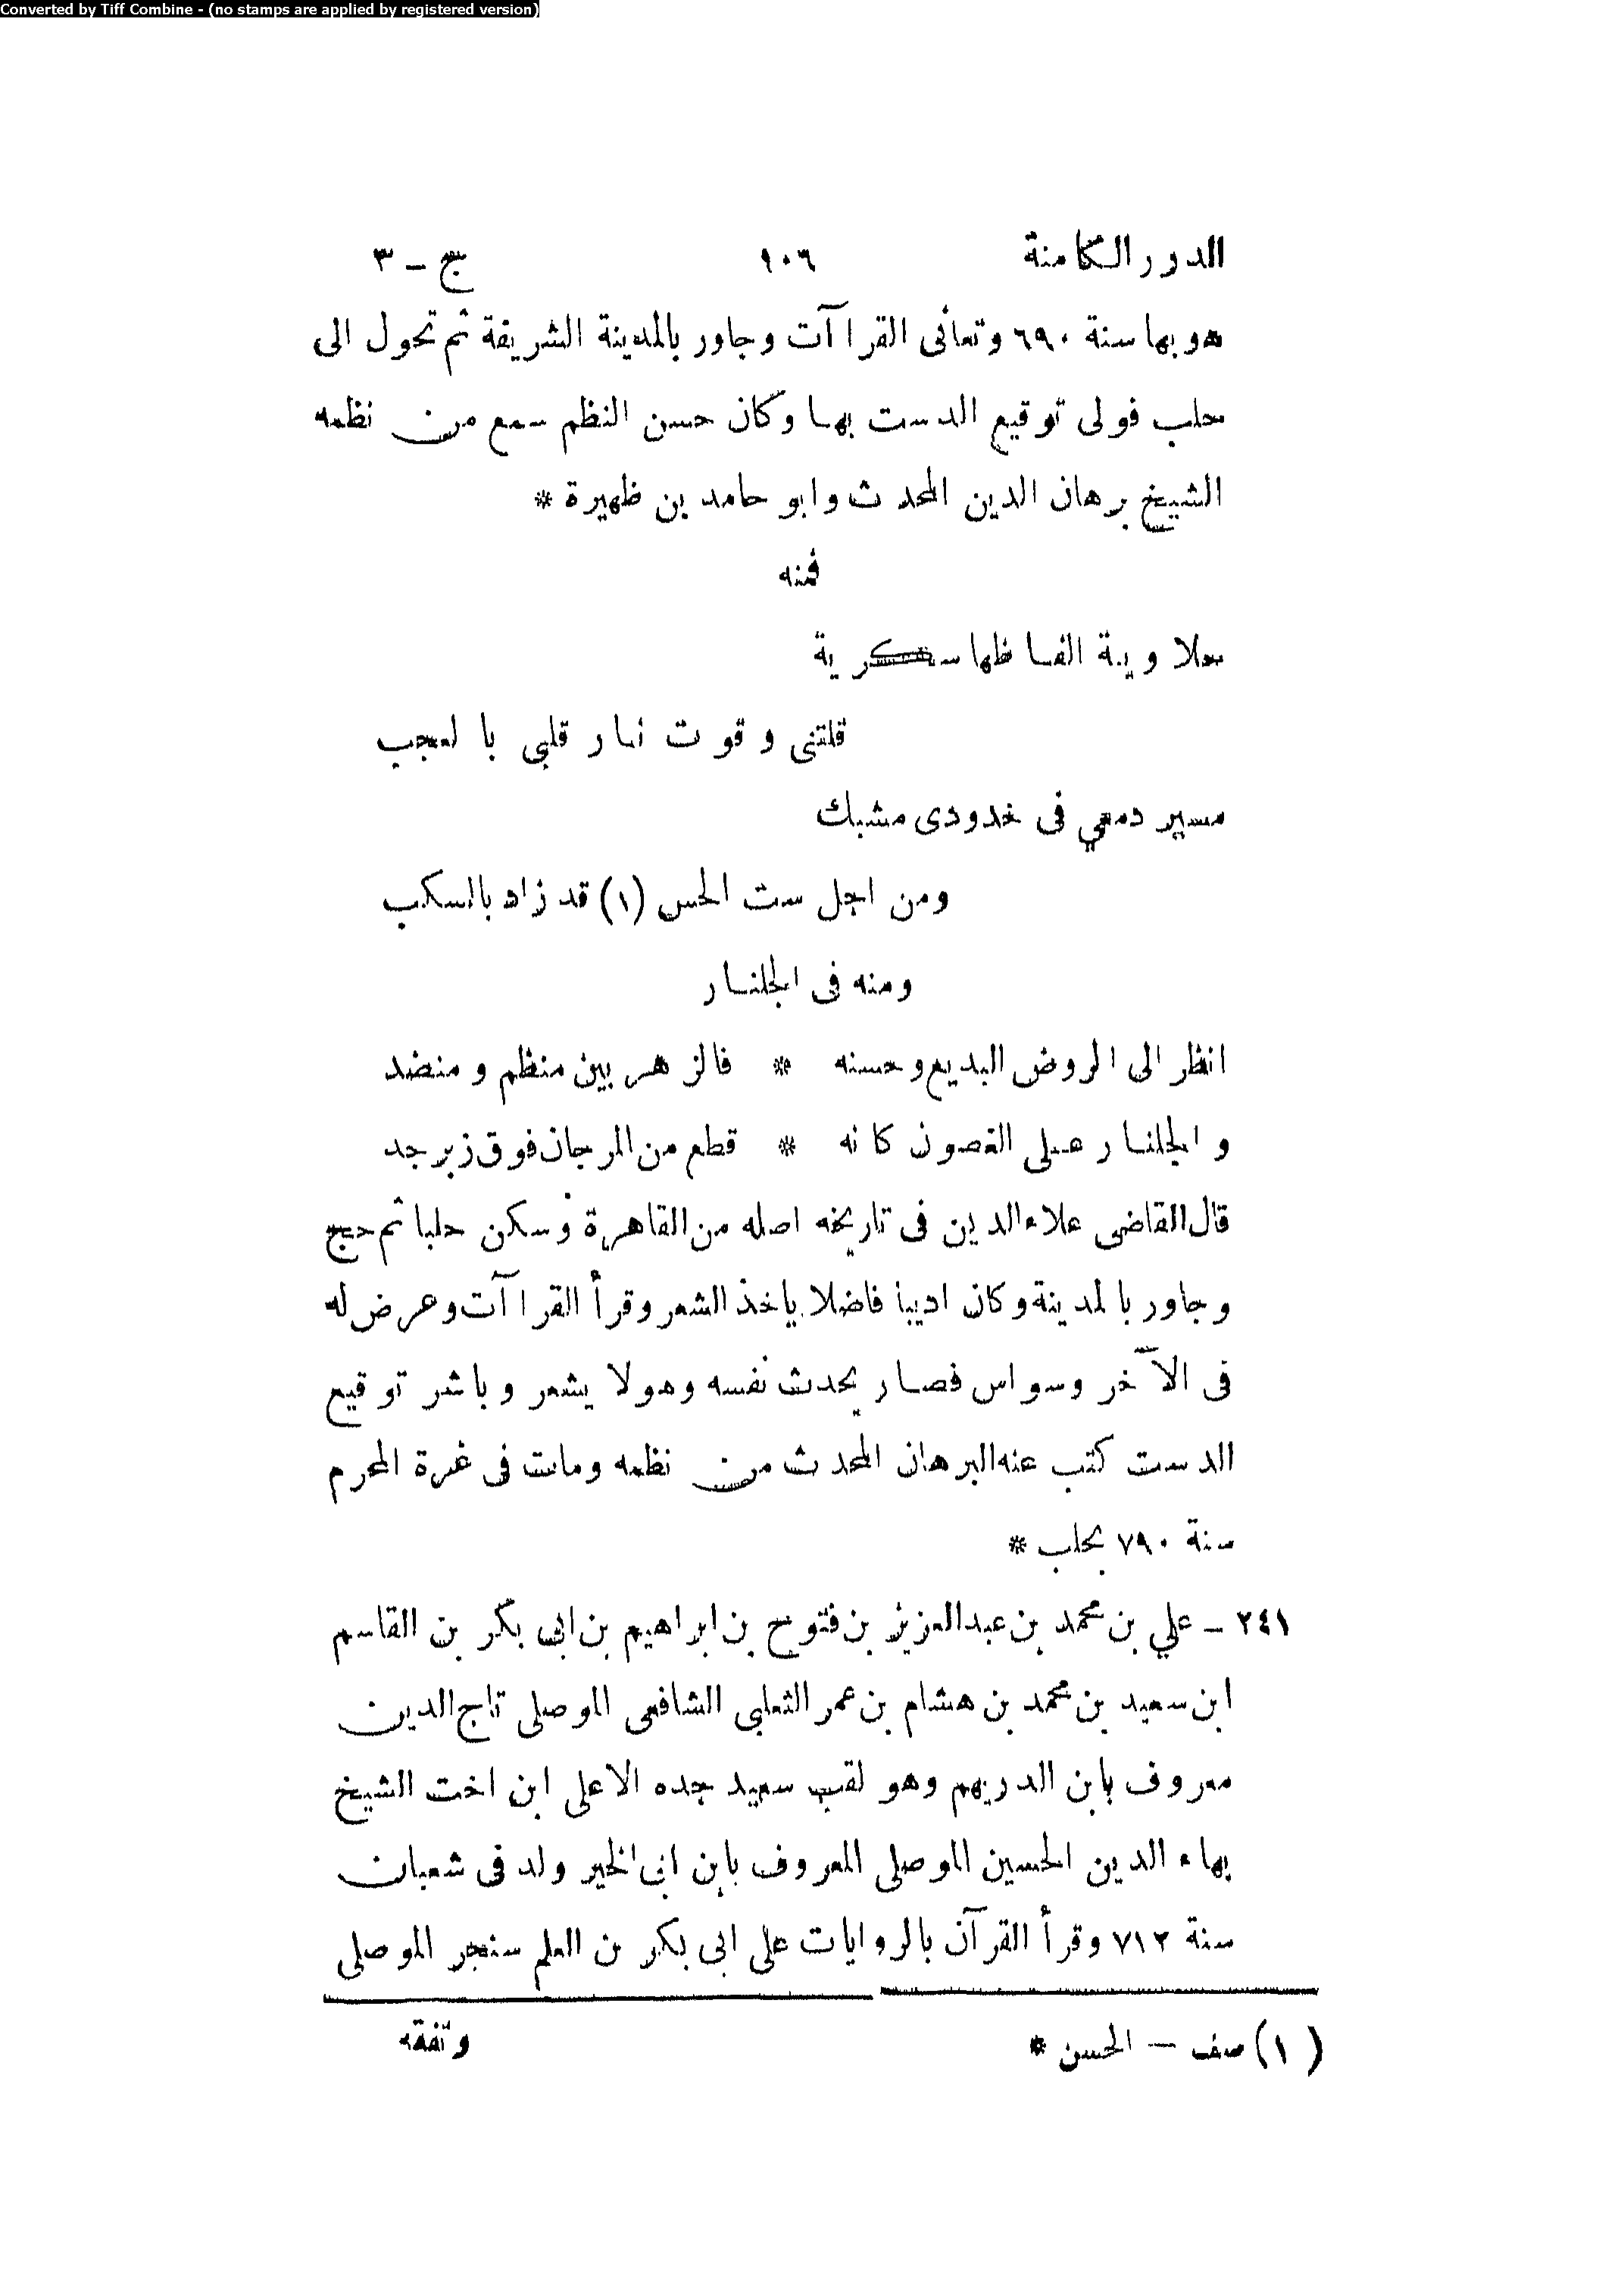 Converted by Tiff Combine - (no stamps are applied by registered version)
الدرر الكامنة ١٠٦ ج - ٣
هو بها سنة ٦٩٠ وتعانى القراآت وجاور بالمدينة الشريفة ثم تحول الى
حلب فولى توقيع الدست بها وكان حسن النظم سمع من نظمه
الشيخ برهان الدين المحدث وابو حامد بن ظهيرة *
فمنه
حلاوية الفاظها سكرية
قلتنى وقوت نار قلبي بالعجب
مسير دمعي فى خدودى مشبك
ومن اجل ست الحس (١) قد زاد بالسكب
ومنه فى الجلنار
انظر الى الروض البديع وحسنه * فالزهر بين منظم ومنضد
والجلنار على الغصون كانه * قطع من المرجان فوق زبرجد
قال القاضى علاء الدين فى تاريخه اصله من القاهرة وسكن حلبا ثم حج
وجاور بالمدينة وكان اديبا فاضلا ياخذ الشعر وقرأ القراآت وعرض له
فى الآخر وسواس فصار يحدث نفسه وهو لا يشعر وباشر توقيع
الدست كتب عنه البرهان المحدث من نظمه ومات فى غرة المحرم
سنة ٧٩٠ بحلب *
٢٤١ - علي بن محمد بن عبدالعزيز بن فتوح بن ابراهيم بن ابى بكر بن القاسم
ابن سعيد بن محمد بن هشام بن عمر الثعلبي الشافعى الموصلى تاج الدين
معروف بابن الدريهم وهو لقب سعيد جده الاعلى ابن اخت الشيخ
بهاء الدين الحسين الموصلى المعروف بابن ابى الخير ولد فى شعبان
سنة ٧١٢ وقرأ القرآن بالروايات على ابى بكر بن العلم سنجر الموصلى
(١) صف - الحسن *
وتفقه